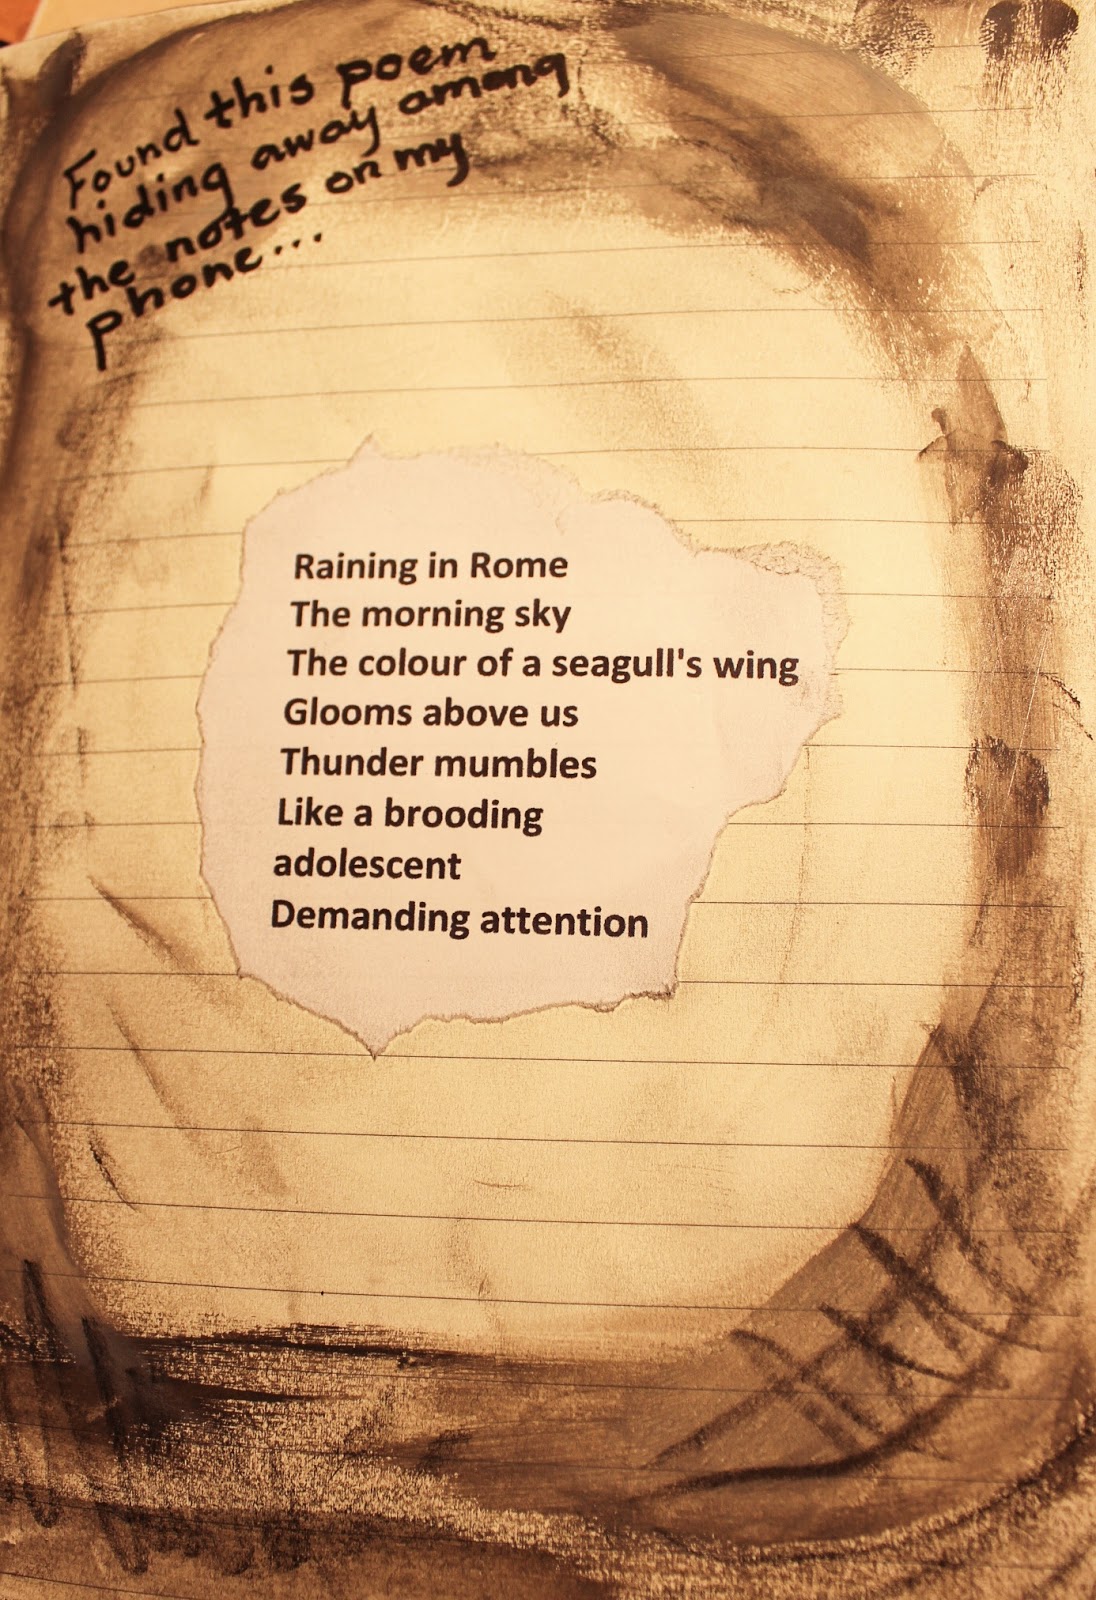 Found this poem
hiding away among
the notes on my
phone...
Raining in Rome
The morning sky
The colour of a seagull's wing
Glooms above us
Thunder mumbles
Like a brooding
adolescent
Demanding attention